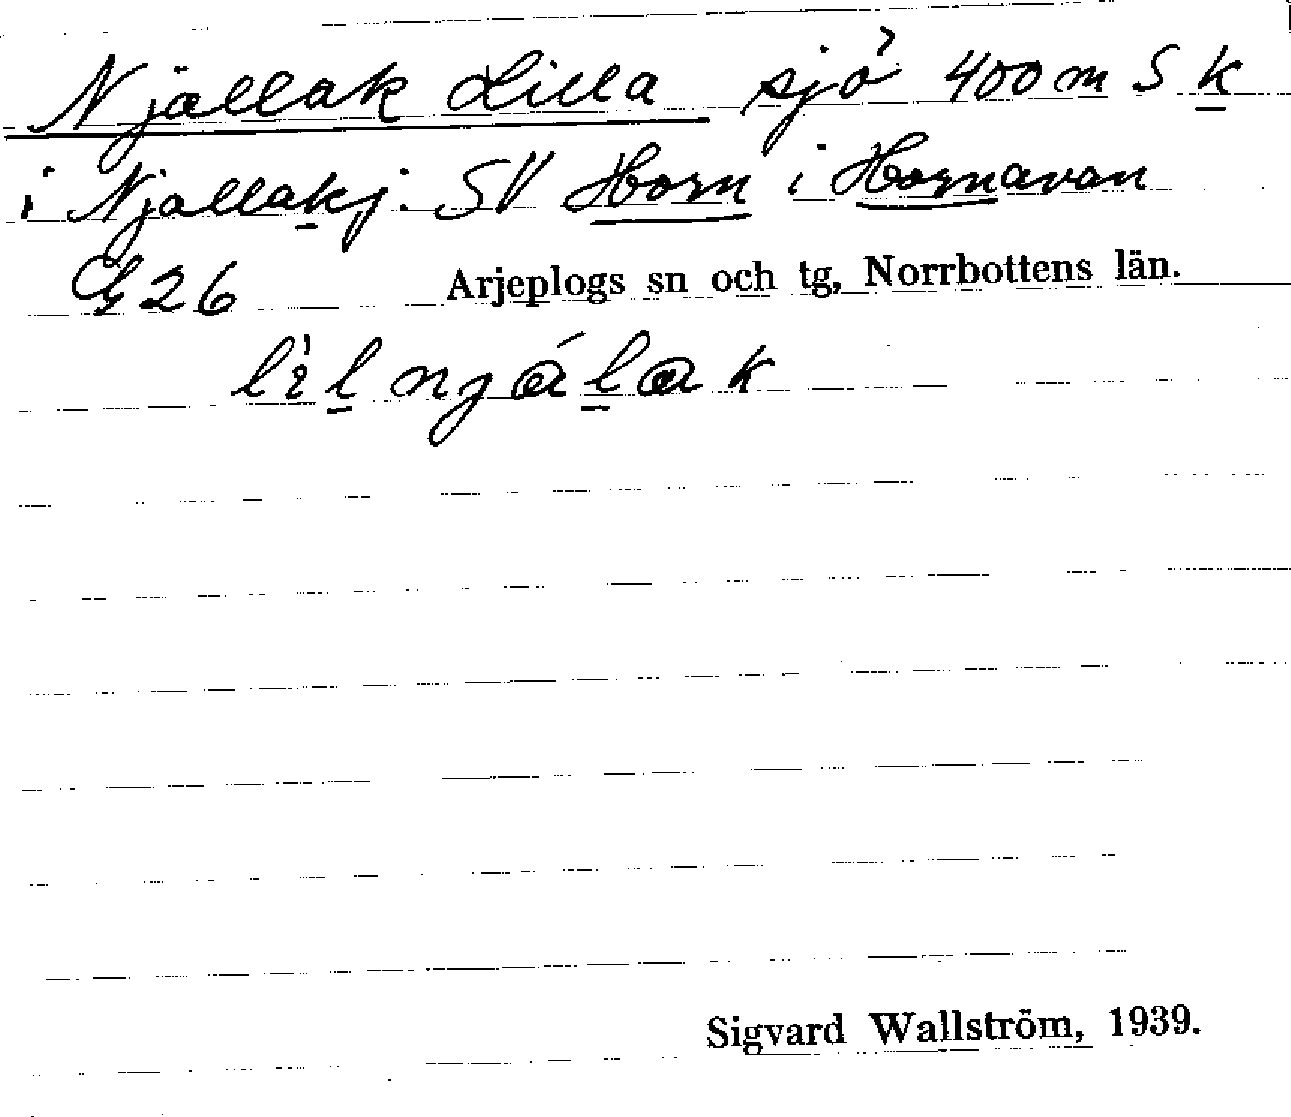 Njallak Lilla sjö 400 m S k
i Njallakj. SV Horn i Hornavan
G 26 Arjeplogs sn och tg, Norrbottens län.
lìl njálak
Sigvard Wallström, 1939.